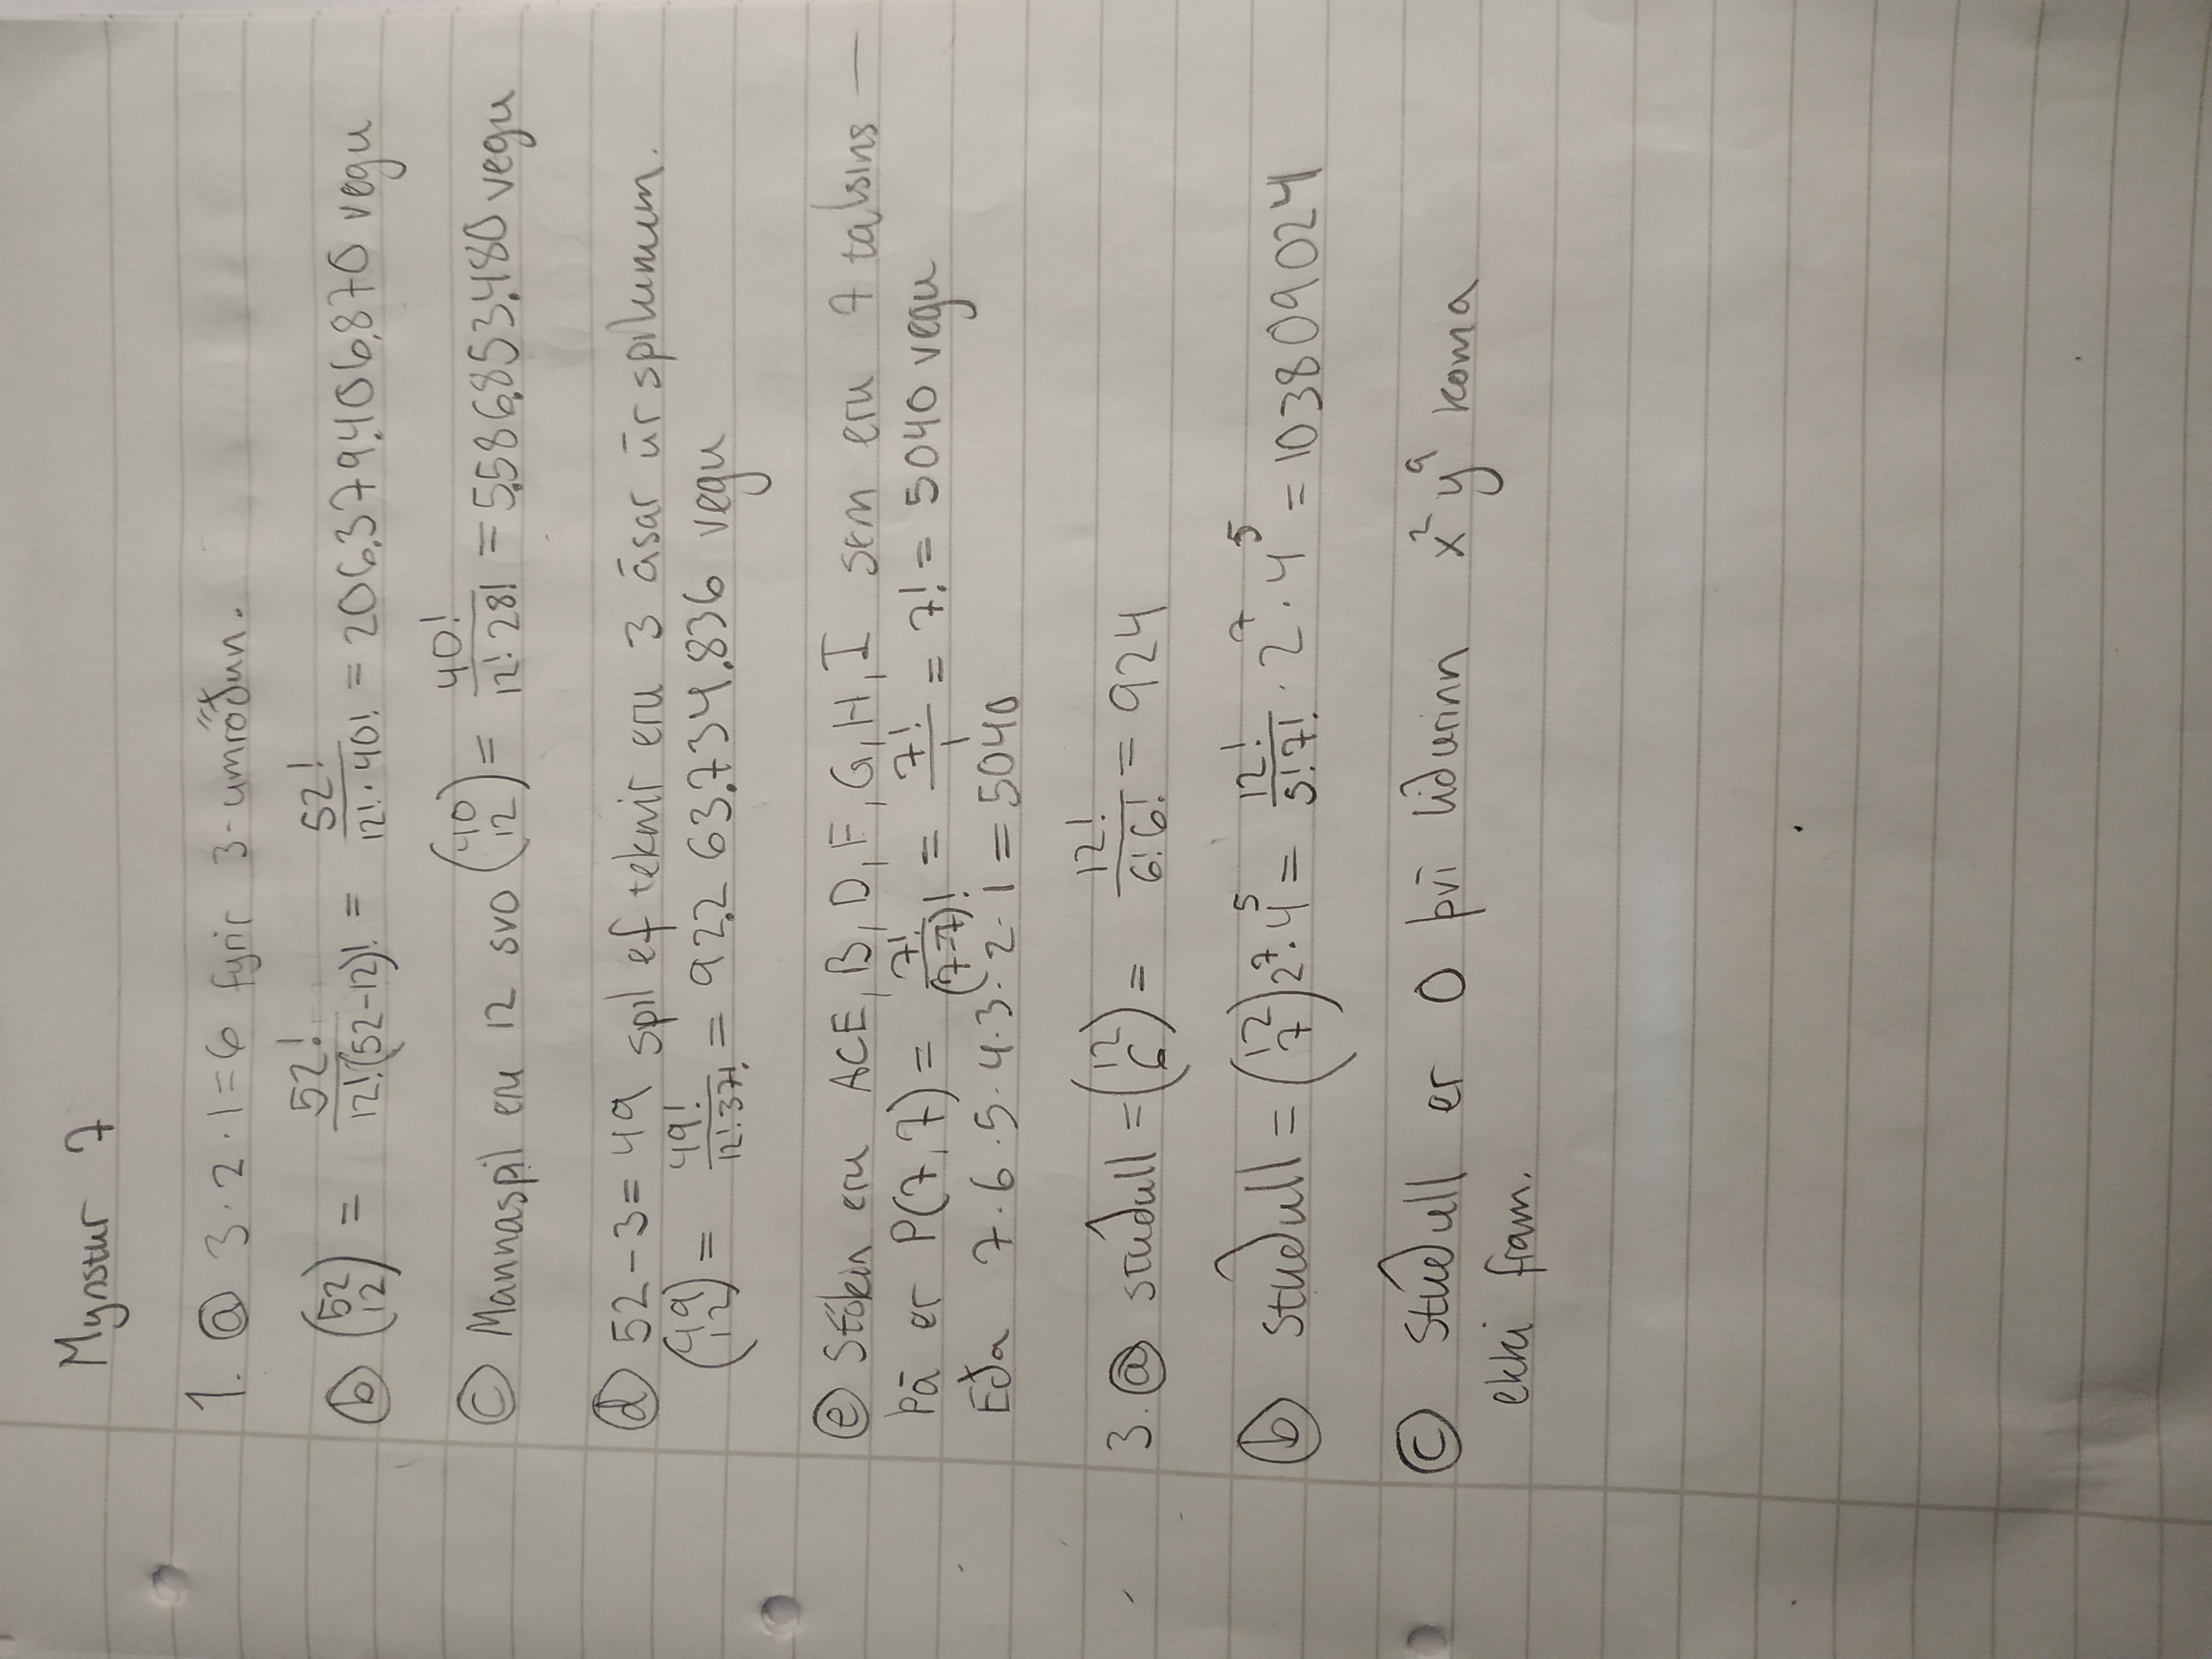 Mynstur 7
1. ⓐ 3·2·1=6 fyrir 3-umröðun.
ⓑ (52 12) = 52!/12!(52-12)! = 52!/12!·40! = 206.379.406.870 vegu
ⓒ Mannaspil eru 12 svo (40 12) = 40!/12! 28! = 5.586.853.480 vegu
ⓓ 52-3=49 spil ef teknir eru 3 ásar úr spilunum.
(49 12) = 49!/12!·37! = 92.263.734.836 vegu
ⓔ Stökin eru ACE, B, D, F, G, H, I sem eru 7 talsins —
Þá er P(7,7) = 7!/(7-7)! = 7!/1 = 7! = 5040 vegu
Eða 7·6·5·4·3·2·1 = 5040
3. ⓐ stuðull = (12 6) = 12!/6!6! = 924
ⓑ stuðull = (12 7)2⁷·4⁵ = 12!/5!7! · 2⁷·4⁵ = 103809024
ⓒ Stuðull er 0 því liðurinn x²y⁹ koma
ekki fram.